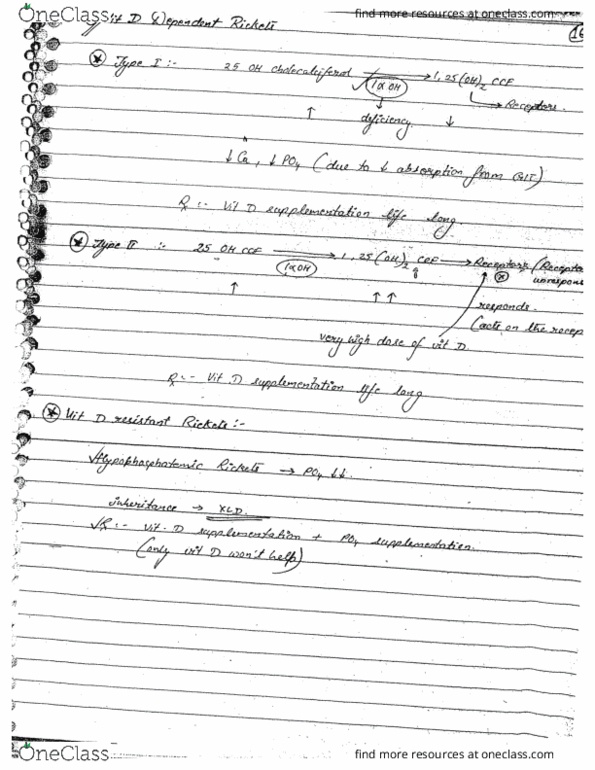 OneClass
find more resources at oneclass.com
Vit D Dependent Rickets
16
Type I :- 25 OH cholecalciferol → 1,25(OH)2 CCF
1α OH → Receptors.
↑ deficiency ↓
↓ Ca, ↓ PO4 (due to ↓ absorption from GIT)
R :- Vit D supplementation life long.
Type II :- 25 OH CCF → 1,25(OH)2 CCF → Receptors (Recepto
1α OH unrespons
↑ ↑↑ responds.
(acts on the recep
very high dose of vit D.
R :- Vit D supplementation life long
Vit D resistant Rickets :-
Hypophosphatemic Rickets → PO4 ↓↓.
inheritance → XLD.
R :- Vit. D supplementation + PO4 supplementation.
(only vit D won't help)
OneClass
find more resources at oneclass.com